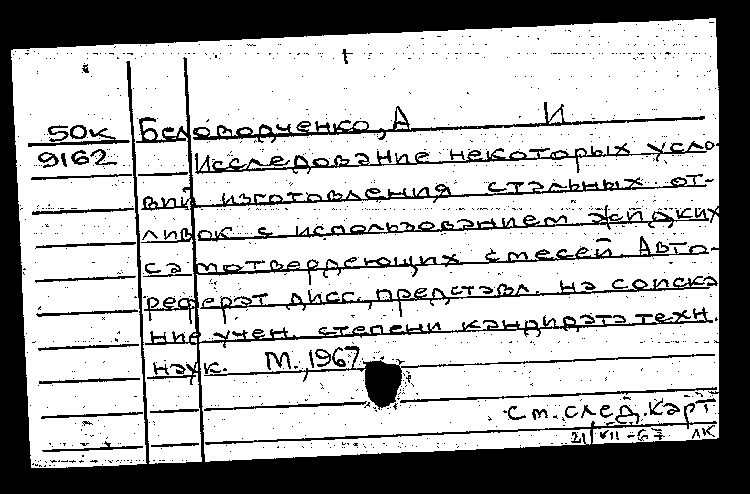 50к Беловодченко, А И
9162 Исследование некоторых усло-
вий изготовления стальных от-
ливок с использованием жидких
самотвердеющих смесей. Авто-
реферат дисс., представл. на соиска
ние учен. степени кандидата техн.
наук. М., 1967
См. след. карт
21/VII-67 ЛК